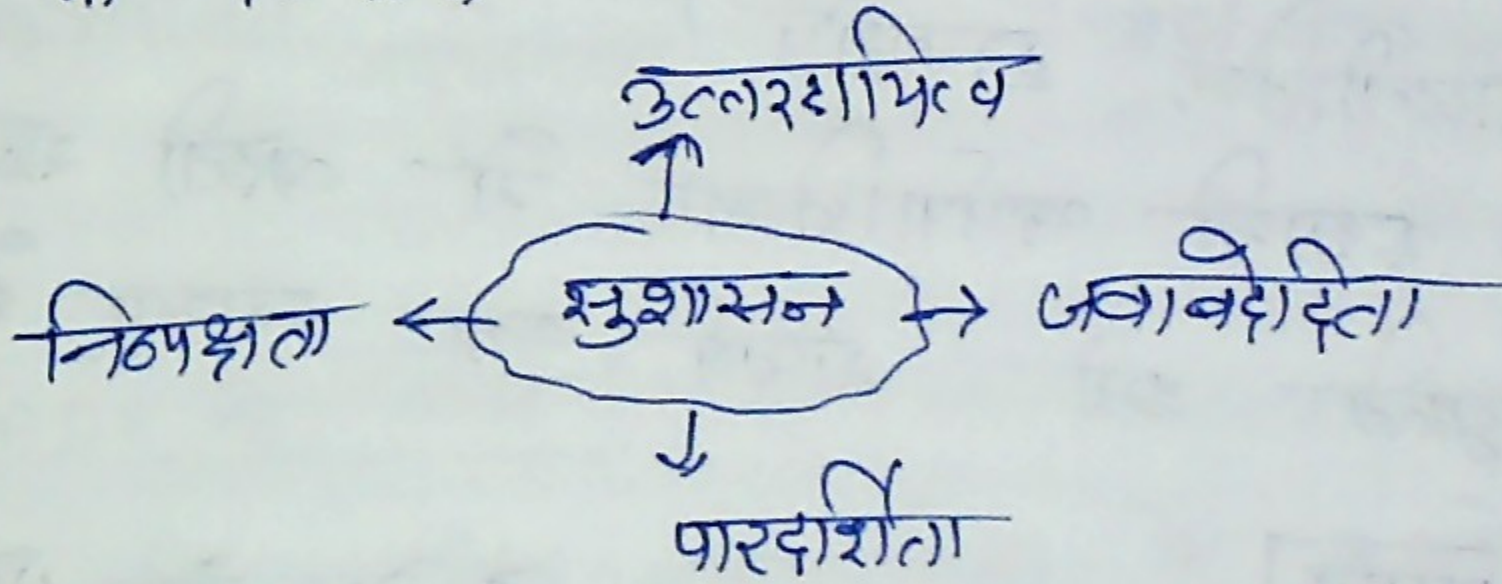 उत्तरदायित्व
निष्पक्षता ← सुशासन → जवाबदेहिता
पारदर्शिता